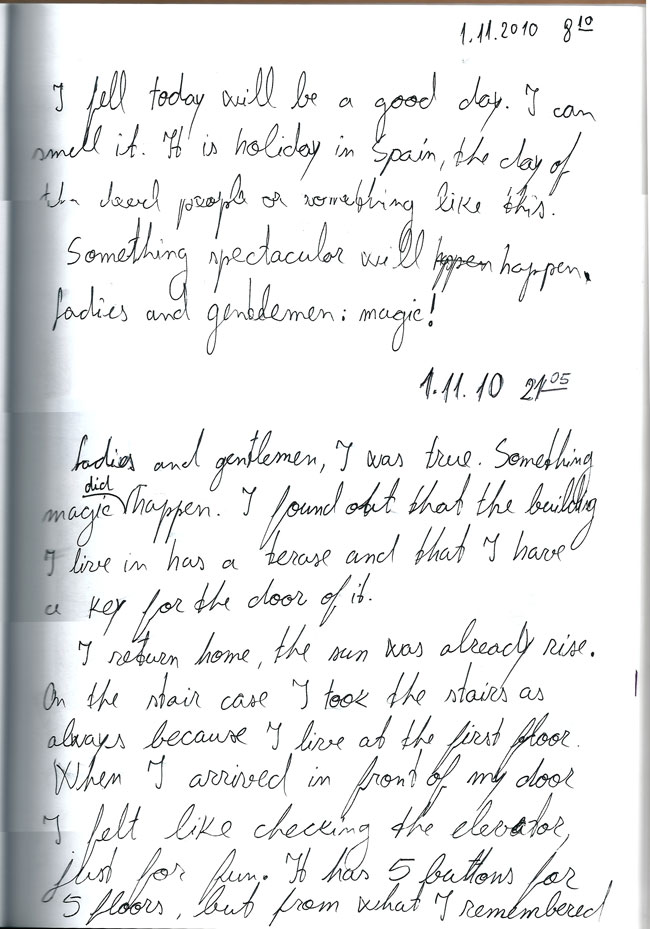 1.11.2010 8 10
I fell today will be a good day. I can
smell it. It is holiday in Spain, the day of
the dead people or something like this.
Something spectacular will happen happen.
Ladies and gentlemen: magic!
1.11.10 21 05
Ladies and gentlemen, I was true. Something
magic did happen. I found out that the building
I live in has a terase and that I have
a key for the door of it.
I return home, the sun was already rise.
On the stair case I took the stairs as
always because I live at the first floor.
When I arrived in front of my door
I felt like checking the elevator,
just for fun. It has 5 buttons for
5 floors, but from what I remembered